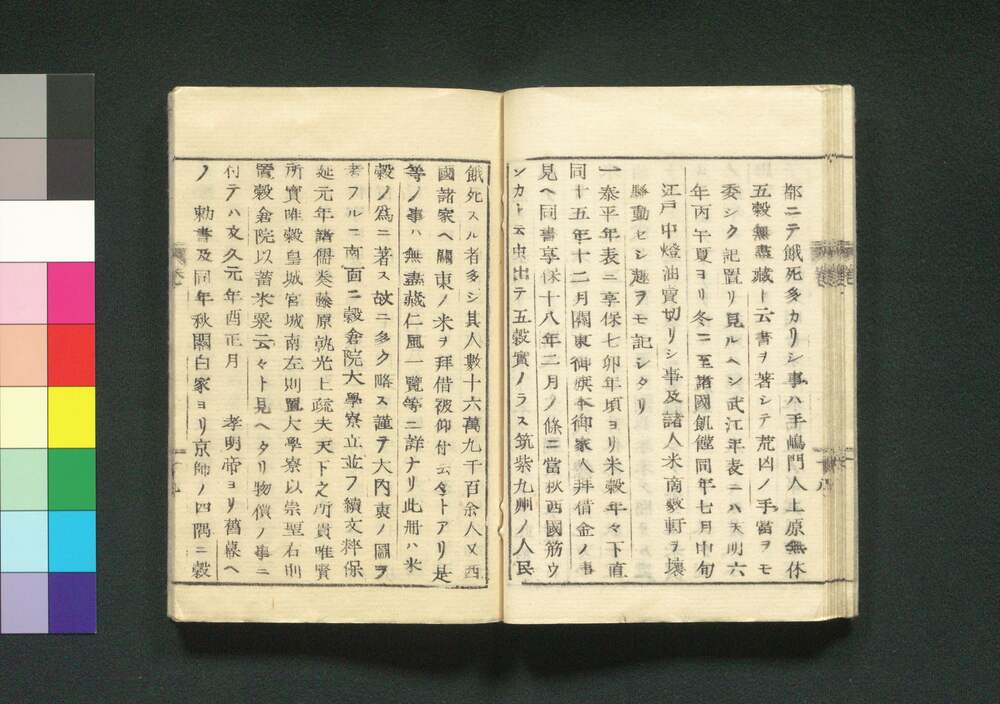 都ニテ餓死多カリシ事ハ手嶋門人上原無休
五穀無盡藏ト云書ヲ著シテ荒凶ノ手當ヲモ
委シク記置リ見ルヘシ武江年表ニハ天明六
年丙午夏ヨリ冬ニ至諸國飢饉同年七月中旬
江戸中燈油賣切リシ事及諸人米商數軒ヲ壊
騒動セシ趣ヲモ記シタリ
一泰平年表ニ享保七卯年頃ヨリ米穀年々下直
同十五年十二月關東御旗本御家人拜借金ノ事
見ヘ同書享保十八年二月ノ條ニ當秋西國筋ウ
ンカト云虫出テ五穀實ノラス筑紫九州ノ人民
餓死スル者多シ其人數十六萬九千百余人又西
國諸家ヘ關東ノ米ヲ拜借被仰付云々トアリ是
等ノ事ハ無盡藏仁風一覽等ニ詳ナリ此册ハ米
穀ノ爲ニ著ス故ニ多ク略ス謹テ大内裏ノ圖ヲ
考フルニ南面ニ穀倉院大學寮立並フ續文粹保
延元年諸儒奏藤原敦光上疏夫天下之所貴唯賢
所寶唯穀皇城宮城南左則置大學寮以崇聖右則
置穀倉院以蓄米粟云々ト見ヘタリ物價ノ事ニ
付テハ文久元年酉正月　孝明帝ヨリ舊幕ヘ
ノ　勅書及同年秋關白家ヨリ京師ノ四隅ニ穀